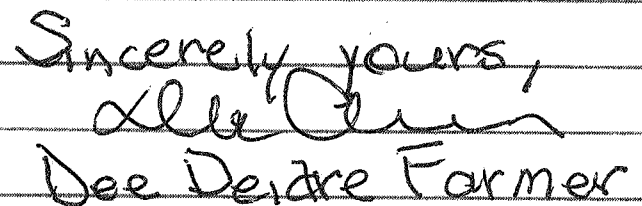 Sincerely yours,
Dee Deidre Farmer